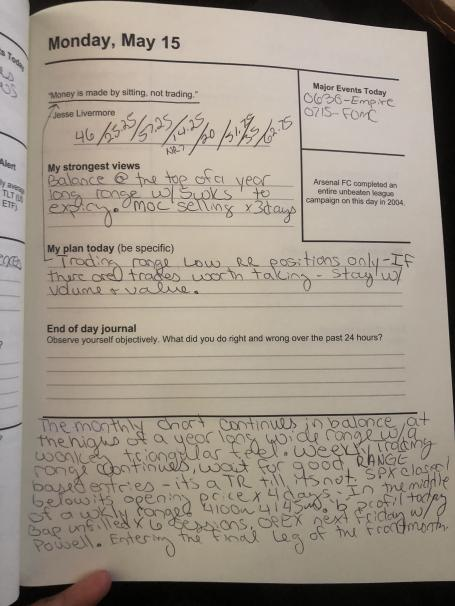 Monday, May 15
"Money is made by sitting, not trading."
Jesse Livermore
46/25.25/57.25/14.25/20/51.75/5/62.75
NR7
Major Events Today
0630-Empire
0715-FOMC
My strongest views
Balance @ the top of a year
long range w/5wks to
expiry. MOC selling x 3days
Arsenal FC completed an
entire unbeaten league
campaign on this day in 2004.
My plan today (be specific)
Trading range Low RR positions only-IF
there are trades worth taking - Stay w/
volume + value.
End of day journal
Observe yourself objectively. What did you do right and wrong over the past 24 hours?
The monthly chart continues in balance at
the highs of a year long wide range w/a
wonkey triangular feel. Weekly Trading
range continues, wait for good RANGE
based entries - its a TR till its not. SPX closed
below its opening price x 4 days. In the middle
of a wkly range 4100h 4145 b profil today
Gap unfilled x 6 sessions, OPEX next Friday w/
Powell. Entering the final leg of the frontmonth.
Today
Alert
TLT (US
ETF)